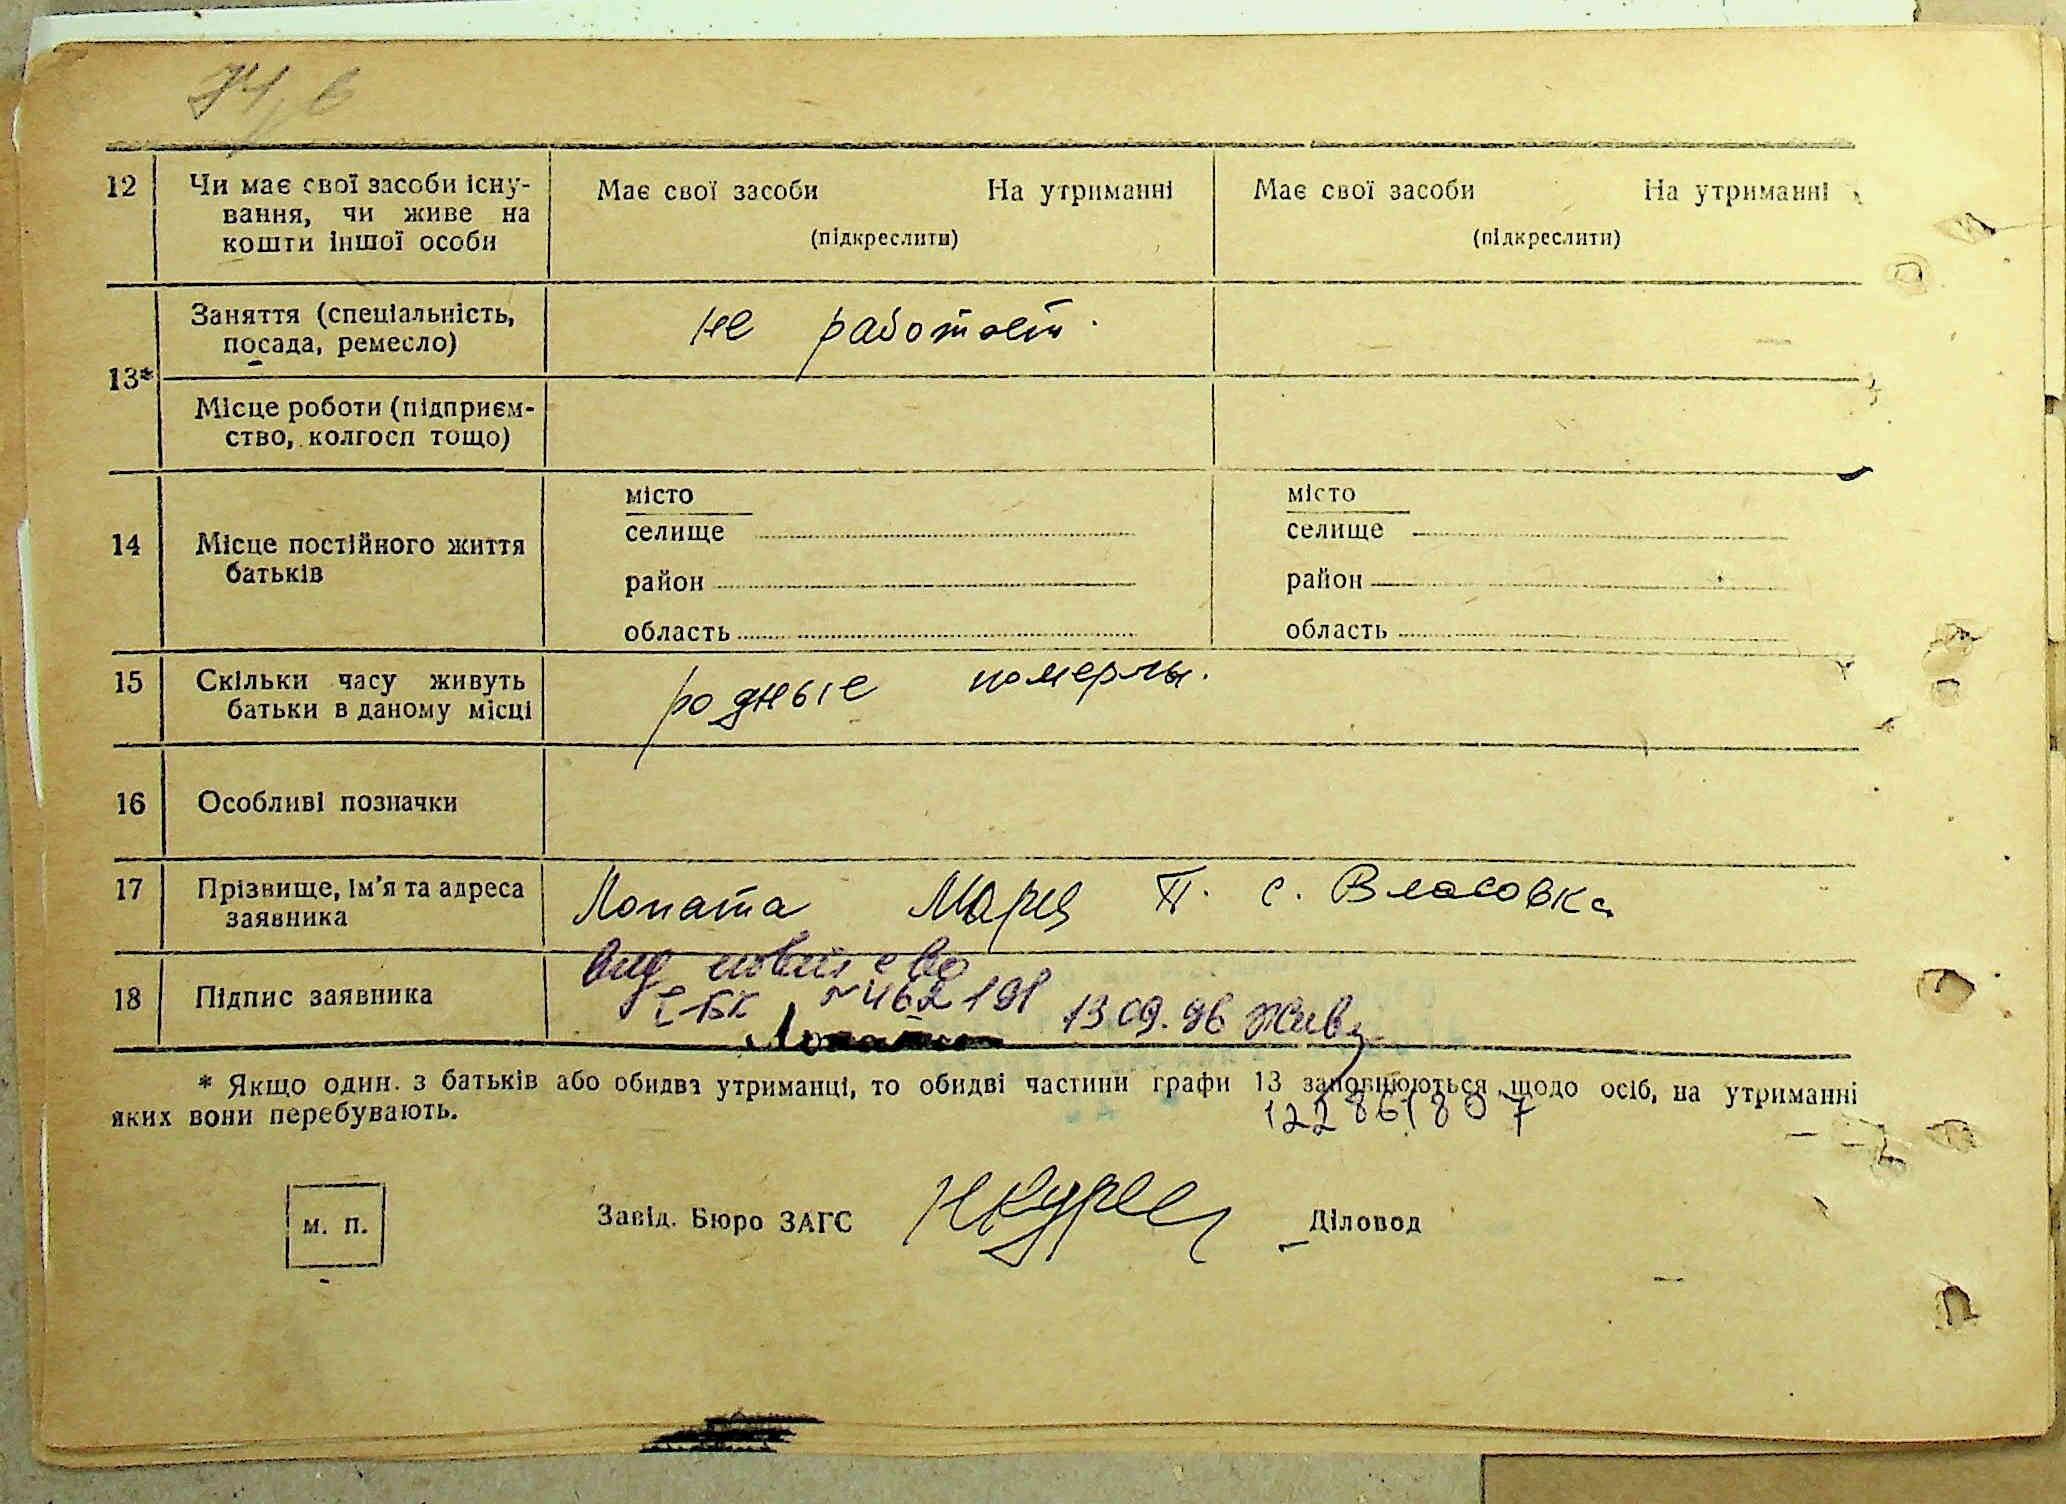 12
Чи має свої засоби існу-
вання, чи живе на
кошти іншої особи
Має свої засоби На утриманні
(підкреслити)
Має свої засоби На утриманні
(підкреслити)
13*
Заняття (спеціальність,
посада, ремесло)
не работает.
Місце роботи (підприєм-
ство, колгосп тощо)
14
Місце постійного життя
батьків
місто
селище
район
область
місто
селище
район
область
15
Скільки часу живуть
батьки в даному місці
родные померлы.
16
Особливі позначки
17
Прізвище, ім'я та адреса
заявника
Лопата Мария П. с. Власовка
18
Підпис заявника
№ 462191 13 09. 96
Лопата
* Якщо один. з батьків або обидва утриманці, то обидві частини графи 13 заповнюються щодо осіб, на утриманні
яких вони перебувають.
122861807
м. п.
Завід. Бюро ЗАГС
Діловод